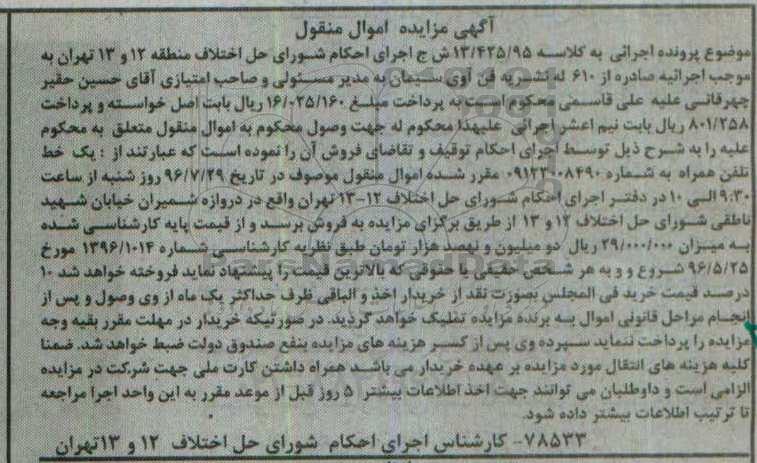 آگهی مزایده اموال منقول
موضوع پرونده اجرائی به کلاسه ۱۳/۴۳۵/۹۵ ش ج اجرای احکام شورای حل اختلاف منطقه ۱۲ و ۱۳ تهران به
موجب اجرائیه صادره از ۶۱۰ له نشریه فن آوی سیمان به مدیر مسئولی و صاحب امتیازی آقای حسین حقیر
چهرقانی علیه علی قاسمی محکوم است به پرداخت مبلغ ۱۶/۰۲۵/۱۶۰ ریال بابت اصل خواسته و پرداخت
۸۰۱/۲۵۸ ریال بابت نیم اعشر اجرائی علیهذا محکوم له جهت وصول محکوم به اموال منقول متعلق به محکوم
علیه را به شرح ذیل توسط اجرای احکام توقیف و تقاضای فروش آن را نموده است که عبارتند از : یک خط
تلفن همراه به شماره ۰۹۱۲۲۰۰۸۴۹۰ مقرر شده اموال منقول موصوف در تاریخ ۹۶/۷/۲۹ روز شنبه از ساعت
۹:۳۰ الی ۱۰ در دفتر اجرای احکام شورای حل اختلاف ۱۲-۱۳ تهران واقع در دروازه شمیران خیابان شهید
ناطقی شورای حل اختلاف ۱۲ و ۱۳ از طریق برگزای مزایده به فروش برسد و از قیمت پایه کارشناسی شده
به میزان ۲۹/۰۰۰/۰۰۰ ریال دو میلیون و نهصد هزار تومان طبق نظریه کارشناسی شماره ۱۳۹۶/۱۰۱۴ مورخ
۹۶/۵/۲۵ شروع و و به هر شخص حقیقی یا حقوقی که بالاترین قیمت را پیشنهاد نماید فروخته خواهد شد ۱۰
درصد قیمت خرید فی المجلس بصورت نقد از خریدار اخذ و الباقی ظرف حداکثر یک ماه از وی وصول و پس از
انجام مراحل قانونی اموال به برنده مزایده تملیک خواهد گردید. در صورتیکه خریدار در مهلت مقرر بقیه وجه
مزایده را پرداخت ننماید سپرده وی پس از کسر هزینه های مزایده بنفع صندوق دولت ضبط خواهد شد. ضمنا
کلیه هزینه های انتقال مورد مزایده بر عهده خریدار می باشد همراه داشتن کارت ملی جهت شرکت در مزایده
الزامی است و داوطلبان می توانند جهت اخذ اطلاعات بیشتر ۵ روز قبل از موعد مقرر به این واحد اجرا مراجعه
تا ترتیب اطلاعات بیشتر داده شود.
۷۸۵۳۳- کارشناس اجرای احکام شورای حل اختلاف ۱۲ و ۱۳تهران